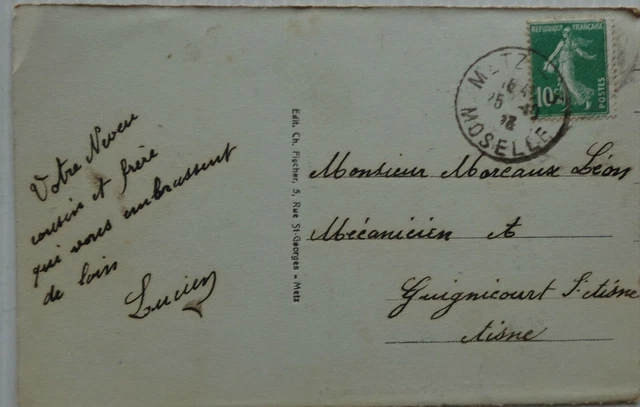 Votre Neveu
cousin et frère
qui vous embrassent
de loin
Lucien
Edit. Ch. Fischer, 5, Rue St-Georges - Metz
REPUBLIQUE FRANÇAISE
10c
POSTES
METZ
MOSELLE
Monsieur Moreaux Léon
Mécanicien A
Guignicourt S. Aisne
Aisne